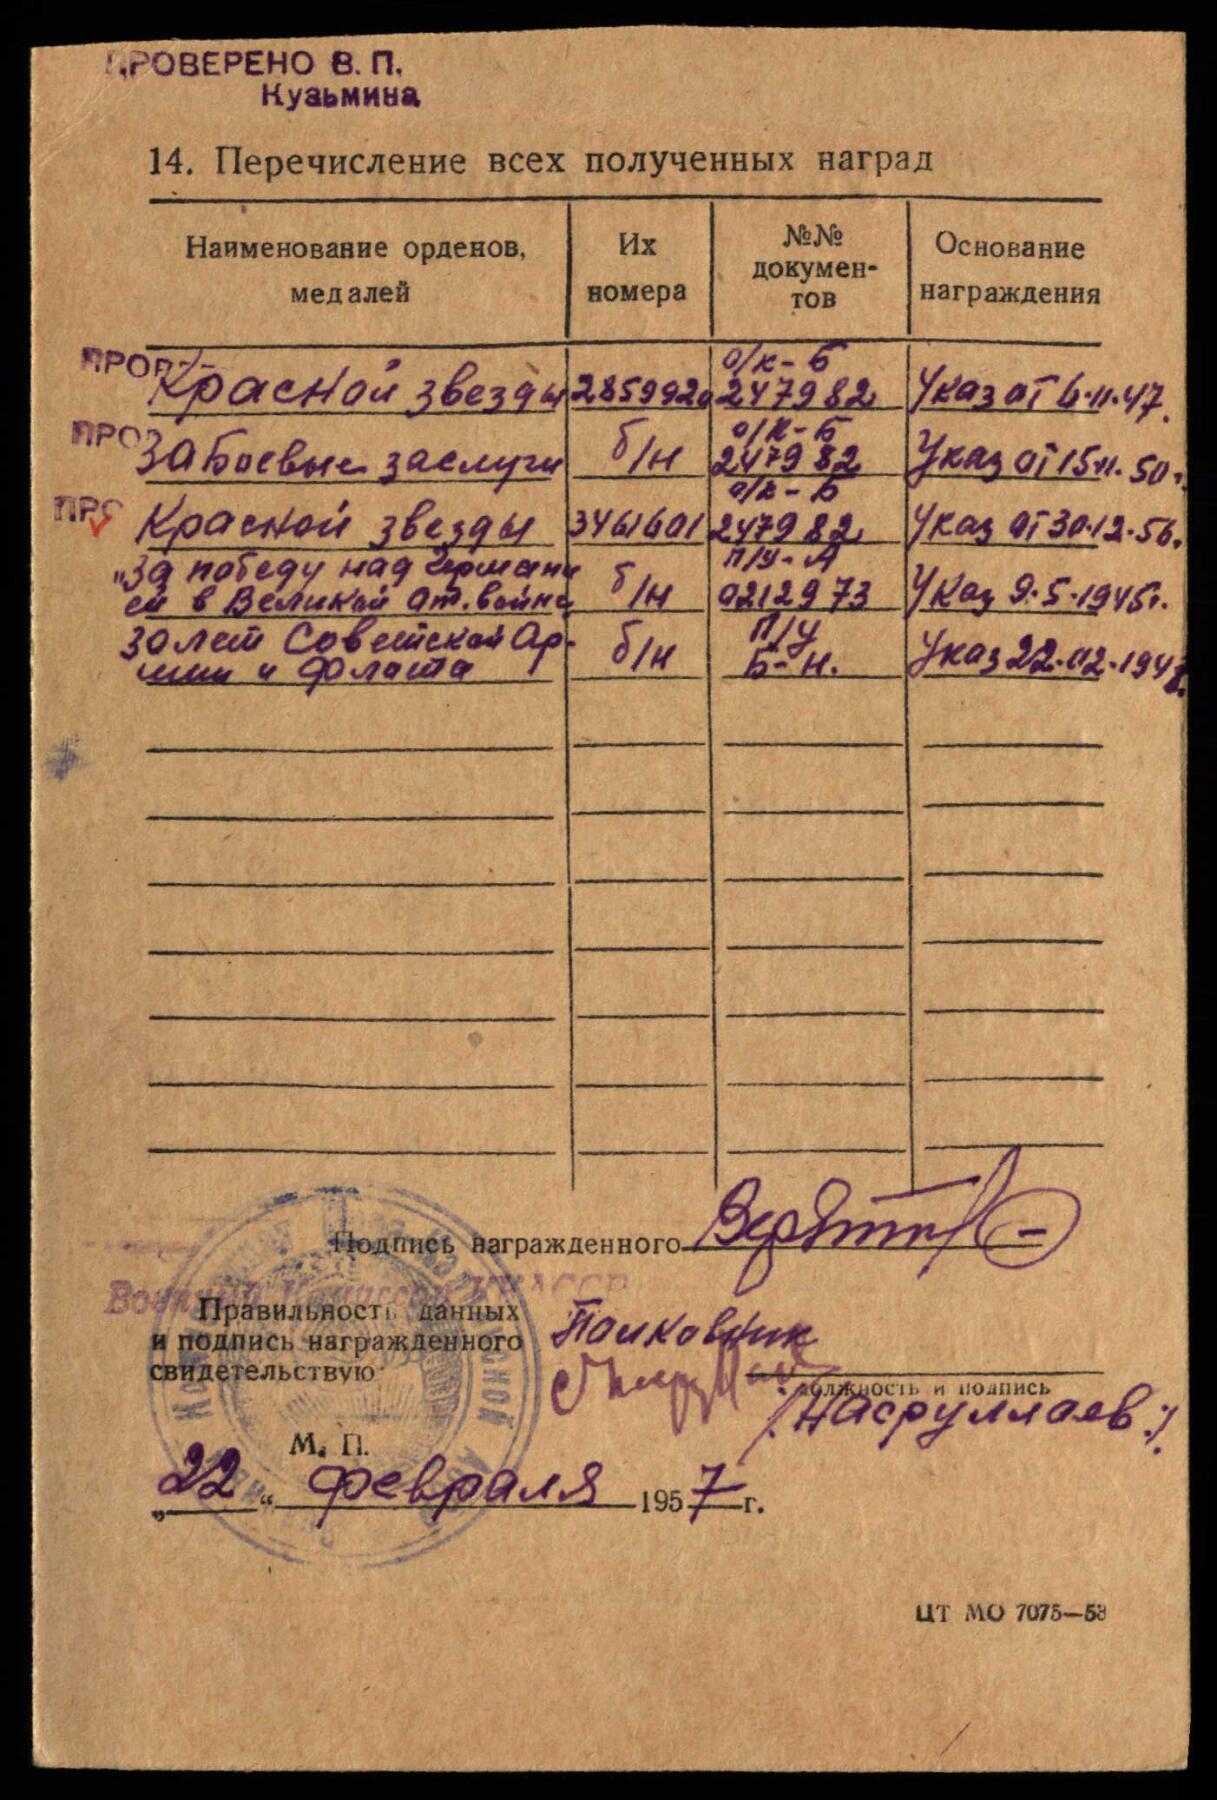 ПРОВЕРЕНО В. П.
Кузьмина
14. Перечисление всех полученных наград
Наименование орденов, медалей
Их номера
№№ документов
Основание награждения
ПРО Красной звезды 2859920 о/к-Б 247982 Указ от 6.11.47.
ПРО За боевые заслуги б/н о/к-Б 247982 Указ от 15.11.50г.
ПРО Красной звезды 3461601 о/к-Б 247982 Указ от 30.12.56.
"За победу над Германи
ей в Великой От. войне б/н П/У-А 0212973 Указ 9.5.1945г.
30 лет Советской Ар-
мии и Флота б/н П/У Б-Н. Указ 22.02.1948.
Подпись награжденного
Военный Комиссар
Правильность данных
и подпись награжденного
свидетельствую
Полковник
должность и подпись
/Насруллаев/
М. П.
„22“ февраля 1957 г.
ЦТ МО 7075—53